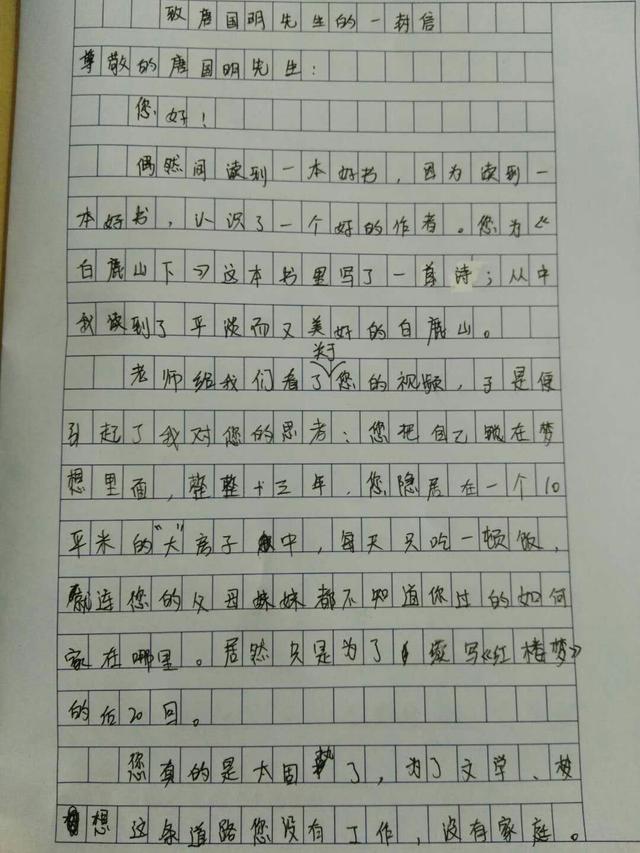 致唐国明先生的一封信
尊敬的唐国明先生：
您好！
偶然间读到一本好书，因为读到一
本好书，认识了一个好的作者。您为《
白鹿山下》这本书里写了一首诗；从中
我读到了平淡而又美好的白鹿山。
关于
老师给我们看了您的视频，于是便
引起了我对您的思考：您把自己锁在梦
想里面，整整十三年，您隐居在一个10
平米的“大”房子中，每天只吃一顿饭，
就连您的父母妹妹都不知道你过的如何
家在哪里。居然只是为了续写《红楼梦》
的后20回。
您真的是太固执了，为了文学、梦
想这条道路您没有工作，没有家庭。